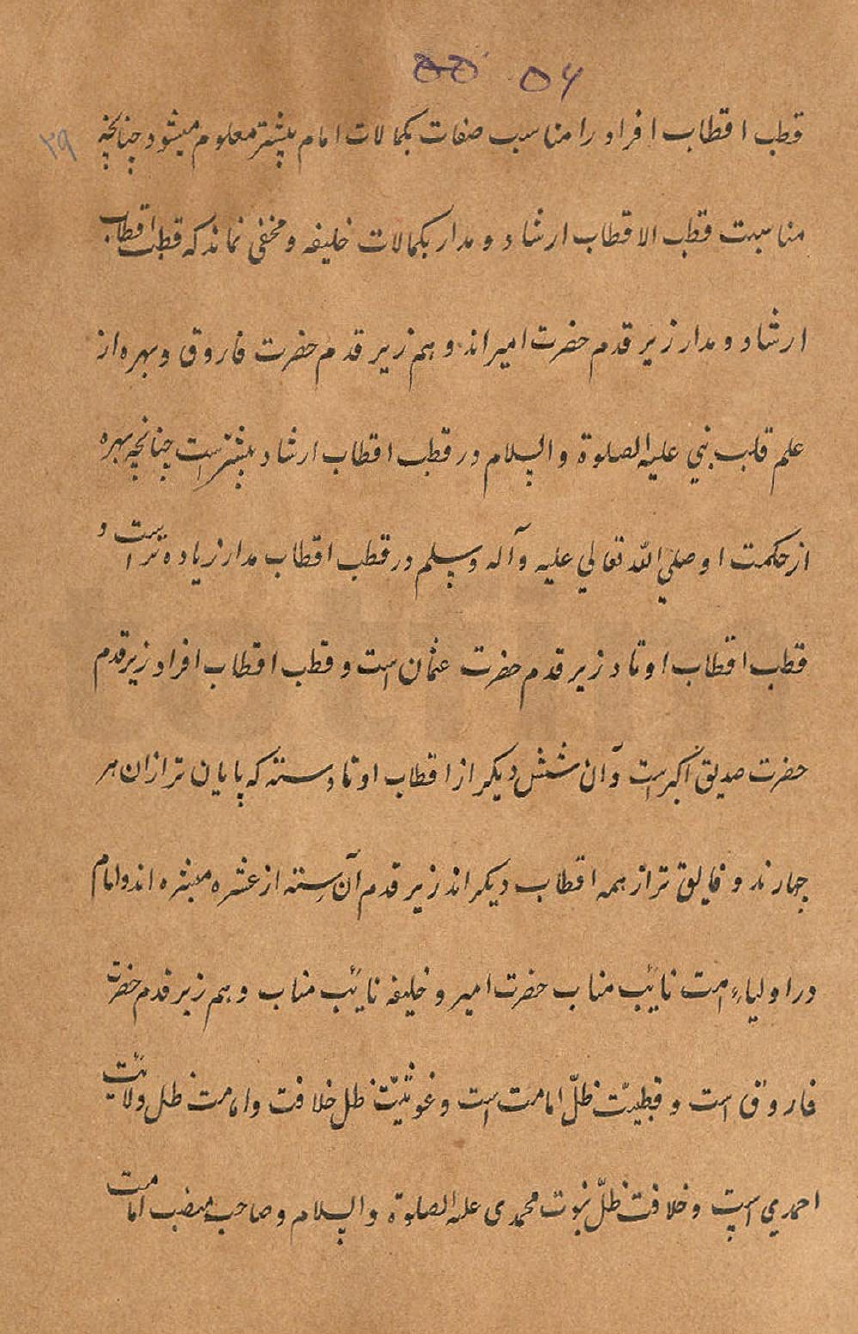 ۵۵ ۵۶
۲۹
قطب اقطاب افراد را مناسب صفات بکمالات امام بیشتر معلوم میشود چنانچه
مناسبت قطب الاقطاب ارشاد و مدار بکمالات خلیفه و مخفی نماند که قطب اقطاب
ارشاد و مدار زیر قدم حضرت امیر اند و هم زیر قدم حضرت فاروق و بهره از
علم قلب نبی علیه الصلوة والسلام در قطب اقطاب ارشاد بیشتر است چنانچه بهره
از حکمت او صلی الله تعالی علیه وآله وسلم در قطب اقطاب مدار زیاده تر است و
قطب اقطاب اوتاد زیر قدم حضرت عثمان است و قطب اقطاب افراد زیر قدم
حضرت صدیق اکبر است وآن شش دیگر از اقطاب اوتاد سته که پایان تر ازان هر
چهارند و فایق تر از همه اقطاب دیگر اند زیر قدم آن سته از عشره مبشره اند و امام
در اولیاء امت نائب مناب حضرت امیر و خلیفه نائب مناب و هم زیر قدم حضرت
فاروق است و قطبیّت ظلّ امامت است و غوثیّت ظل خلافت وامامت ظل ولایت
احمدی است و خلافت ظلّ نبوت محمدی علیه الصلوة والسلام و صاحب منصب امامت